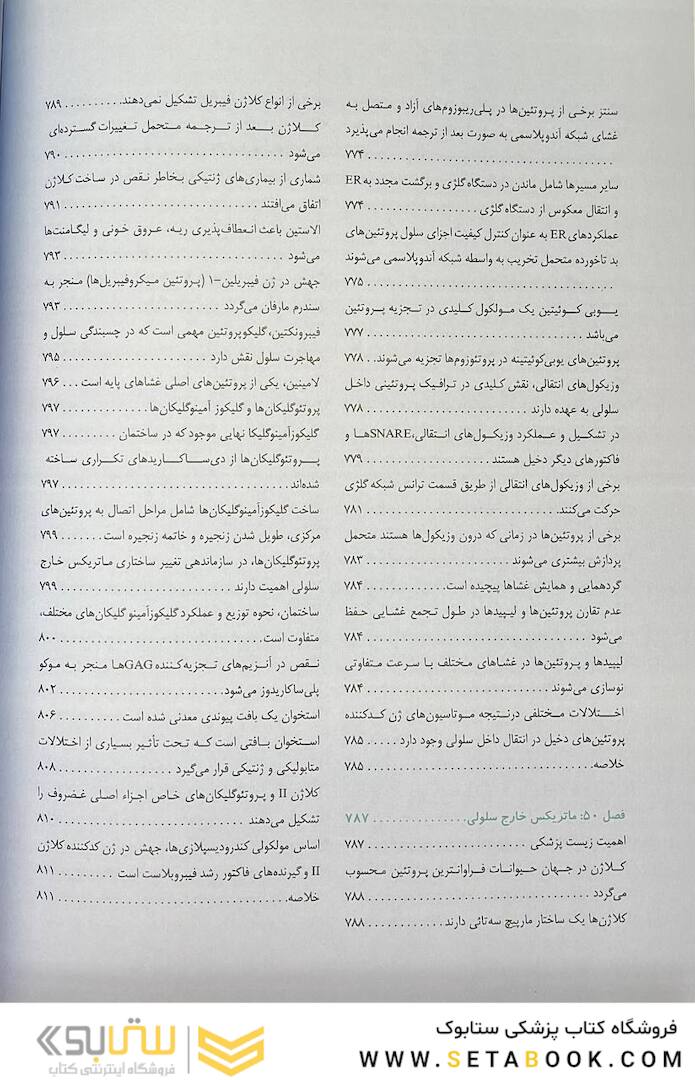 سنتز برخی از پروتئین‌ها در پلی‌ریبوزوم‌های آزاد و متصل به
غشای شبکه آندوپلاسمی به صورت بعد از ترجمه انجام می‌پذیرد
................................ ۷۷۴
سایر مسیرها شامل ماندن در دستگاه گلژی و برگشت مجدد به ER
و انتقال معکوس از دستگاه گلژی ................. ۷۷۴
عملکردهای ER به عنوان کنترل کیفیت اجزای سلول پروتئین‌های
بد تاخورده متحمل تخریب به واسطه شبکه آندوپلاسمی می‌شوند
................................ ۷۷۵
یوبی‌کوئیتین یک مولکول کلیدی در تجزیه پروتئین
می‌باشد ................................ ۷۷۷
پروتئین‌های یوبی‌کوئیتینه در پروتئوزوم‌ها تجزیه می‌شوند. . ۷۷۸
وزیکول‌های انتقالی، نقش کلیدی در ترافیک پروتئینی داخل
سلولی به عهده دارند ......................... ۷۷۸
در تشکیل و عملکرد وزیکول‌های انتقالی، SNAREها و
فاکتورهای دیگر دخیل هستند .................. ۷۷۹
برخی از وزیکول‌های انتقالی از طریق قسمت ترانس شبکه گلژی
حرکت می‌کنند. ............................ ۷۸۱
برخی از پروتئین‌ها در زمانی که درون وزیکول‌ها هستند متحمل
پردازش بیشتری می‌شوند ..................... ۷۸۳
گردهمایی و همایش غشاها پیچیده است. ............ ۷۸۴
عدم تقارن پروتئین‌ها و لیپیدها در طول تجمع غشایی حفظ
می‌شود ................................ ۷۸۴
لیپیدها و پروتئین‌ها در غشاهای مختلف با سرعت متفاوتی
نوسازی می‌شوند ........................... ۷۸۴
اختلالات مختلفی درنتیجه موتاسیون‌های ژن کدکننده
پروتئین‌های دخیل در انتقال داخل سلولی وجود دارد ..... ۷۸۵
خلاصه. ................................ ۷۸۵
فصل ۵۰: ماتریکس خارج سلولی. .............. ۷۸۷
اهمیت زیست پزشکی ....................... ۷۸۷
کلاژن در جهان حیوانات فراوانترین پروتئین محسوب
می‌گردد ................................ ۷۸۸
کلاژن‌ها یک ساختار مارپیچ سه‌تائی دارند ............ ۷۸۸
برخی از انواع کلاژن فیبریل تشکیل نمی‌دهند. ......... ۷۸۹
کلاژن بعد از ترجمه متحمل تغییرات گسترده‌ای
می‌شود ................................ ۷۹۰
شماری از بیماری‌های ژنتیکی بخاطر نقص در ساخت کلاژن
اتفاق می‌افتند ............................ ۷۹۱
الاستین باعث انعطاف‌پذیری ریه، عروق خونی و لیگامنت‌ها
می‌شود ................................ ۷۹۳
جهش در ژن فیبریلین-۱ (پروتئین میکروفیبریل‌ها) منجر به
سندرم مارفان می‌گردد ....................... ۷۹۳
فیبرونکتین، گلیکوپروتئین مهمی است که در چسبندگی سلول و
مهاجرت سلول نقش دارد ..................... ۷۹۵
لامینین، یکی از پروتئین‌های اصلی غشاهای پایه است ... ۷۹۶
پروتئوگلیکان‌ها و گلیکوز آمینوگلیکان‌ها ............. ۷۹۷
گلیکوزآمینوگلیکا نهایی موجود که در ساختمان ......... ۷۹۷
پروتئوگلیکان‌ها از دی‌ساکاریدهای تکراری ساخته
شده‌اند ................................ ۷۹۷
ساخت گلیکوزآمینوگلیکان‌ها شامل مراحل اتصال به پروتئین‌های
مرکزی، طویل شدن زنجیره و خاتمه زنجیره است ....... ۷۹۹
پروتئوگلیکان‌ها، در سازماندهی تغییر ساختاری ماتریکس خارج
سلولی اهمیت دارند ......................... ۷۹۹
ساختمان، نحوه توزیع و عملکرد گلیکوزآمینوگلیکان‌های مختلف،
متفاوت است. ............................. ۸۰۰
نقص در آنزیم‌های تجزیه‌کننده GAGها منجر به موکو
پلی‌ساکاریدوز می‌شود. ....................... ۸۰۲
استخوان یک بافت پیوندی معدنی شده است .......... ۸۰۶
استخوان بافتی است که تحت تأثیر بسیاری از اختلالات
متابولیکی و ژنتیکی قرار می‌گیرد ................. ۸۰۸
کلاژن II و پروتئوگلیکان‌های خاص اجزاء اصلی غضروف را
تشکیل می‌دهند ........................... ۸۱۰
اساس مولکولی کندرودیسپلازی‌ها، جهش در ژن کدکننده کلاژن
II و گیرنده‌های فاکتور رشد فیبروبلاست است ......... ۸۱۱
خلاصه. ................................ ۸۱۱
فروشگاه کتاب پزشکی ستابوک
WWW.SETABOOK.COM
ستابوک
فروشگاه اینترنتی کتاب